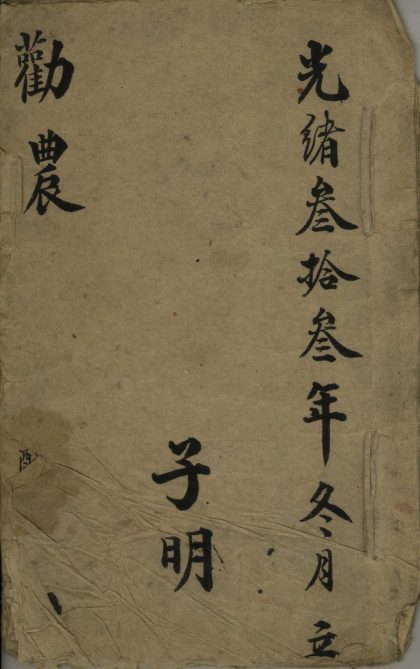 光緒叁拾叁年冬月立
子明
勸農
酉